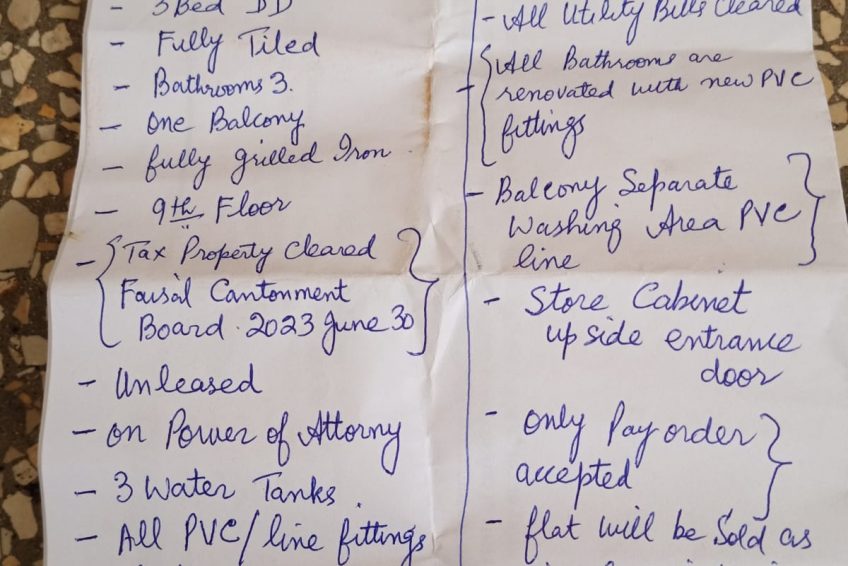 - 3 Bed DD
- Fully Tiled
- Bathrooms 3.
- One Balcony
- fully grilled Iron
- 9th Floor
- Tax Property Cleared
Faisal Cantonment
Board. 2023 June 30
- Unleased
- on Power of Attorny
- 3 Water Tanks.
- All PVC/line fittings
- All Utility Bills Cleared
- All Bathrooms are
renovated with new PVC
fittings
- Balcony Separate
Washing Area PVC
line
- Store Cabinet
upside entrance
door
- only Pay order
accepted
- flat will be Sold as